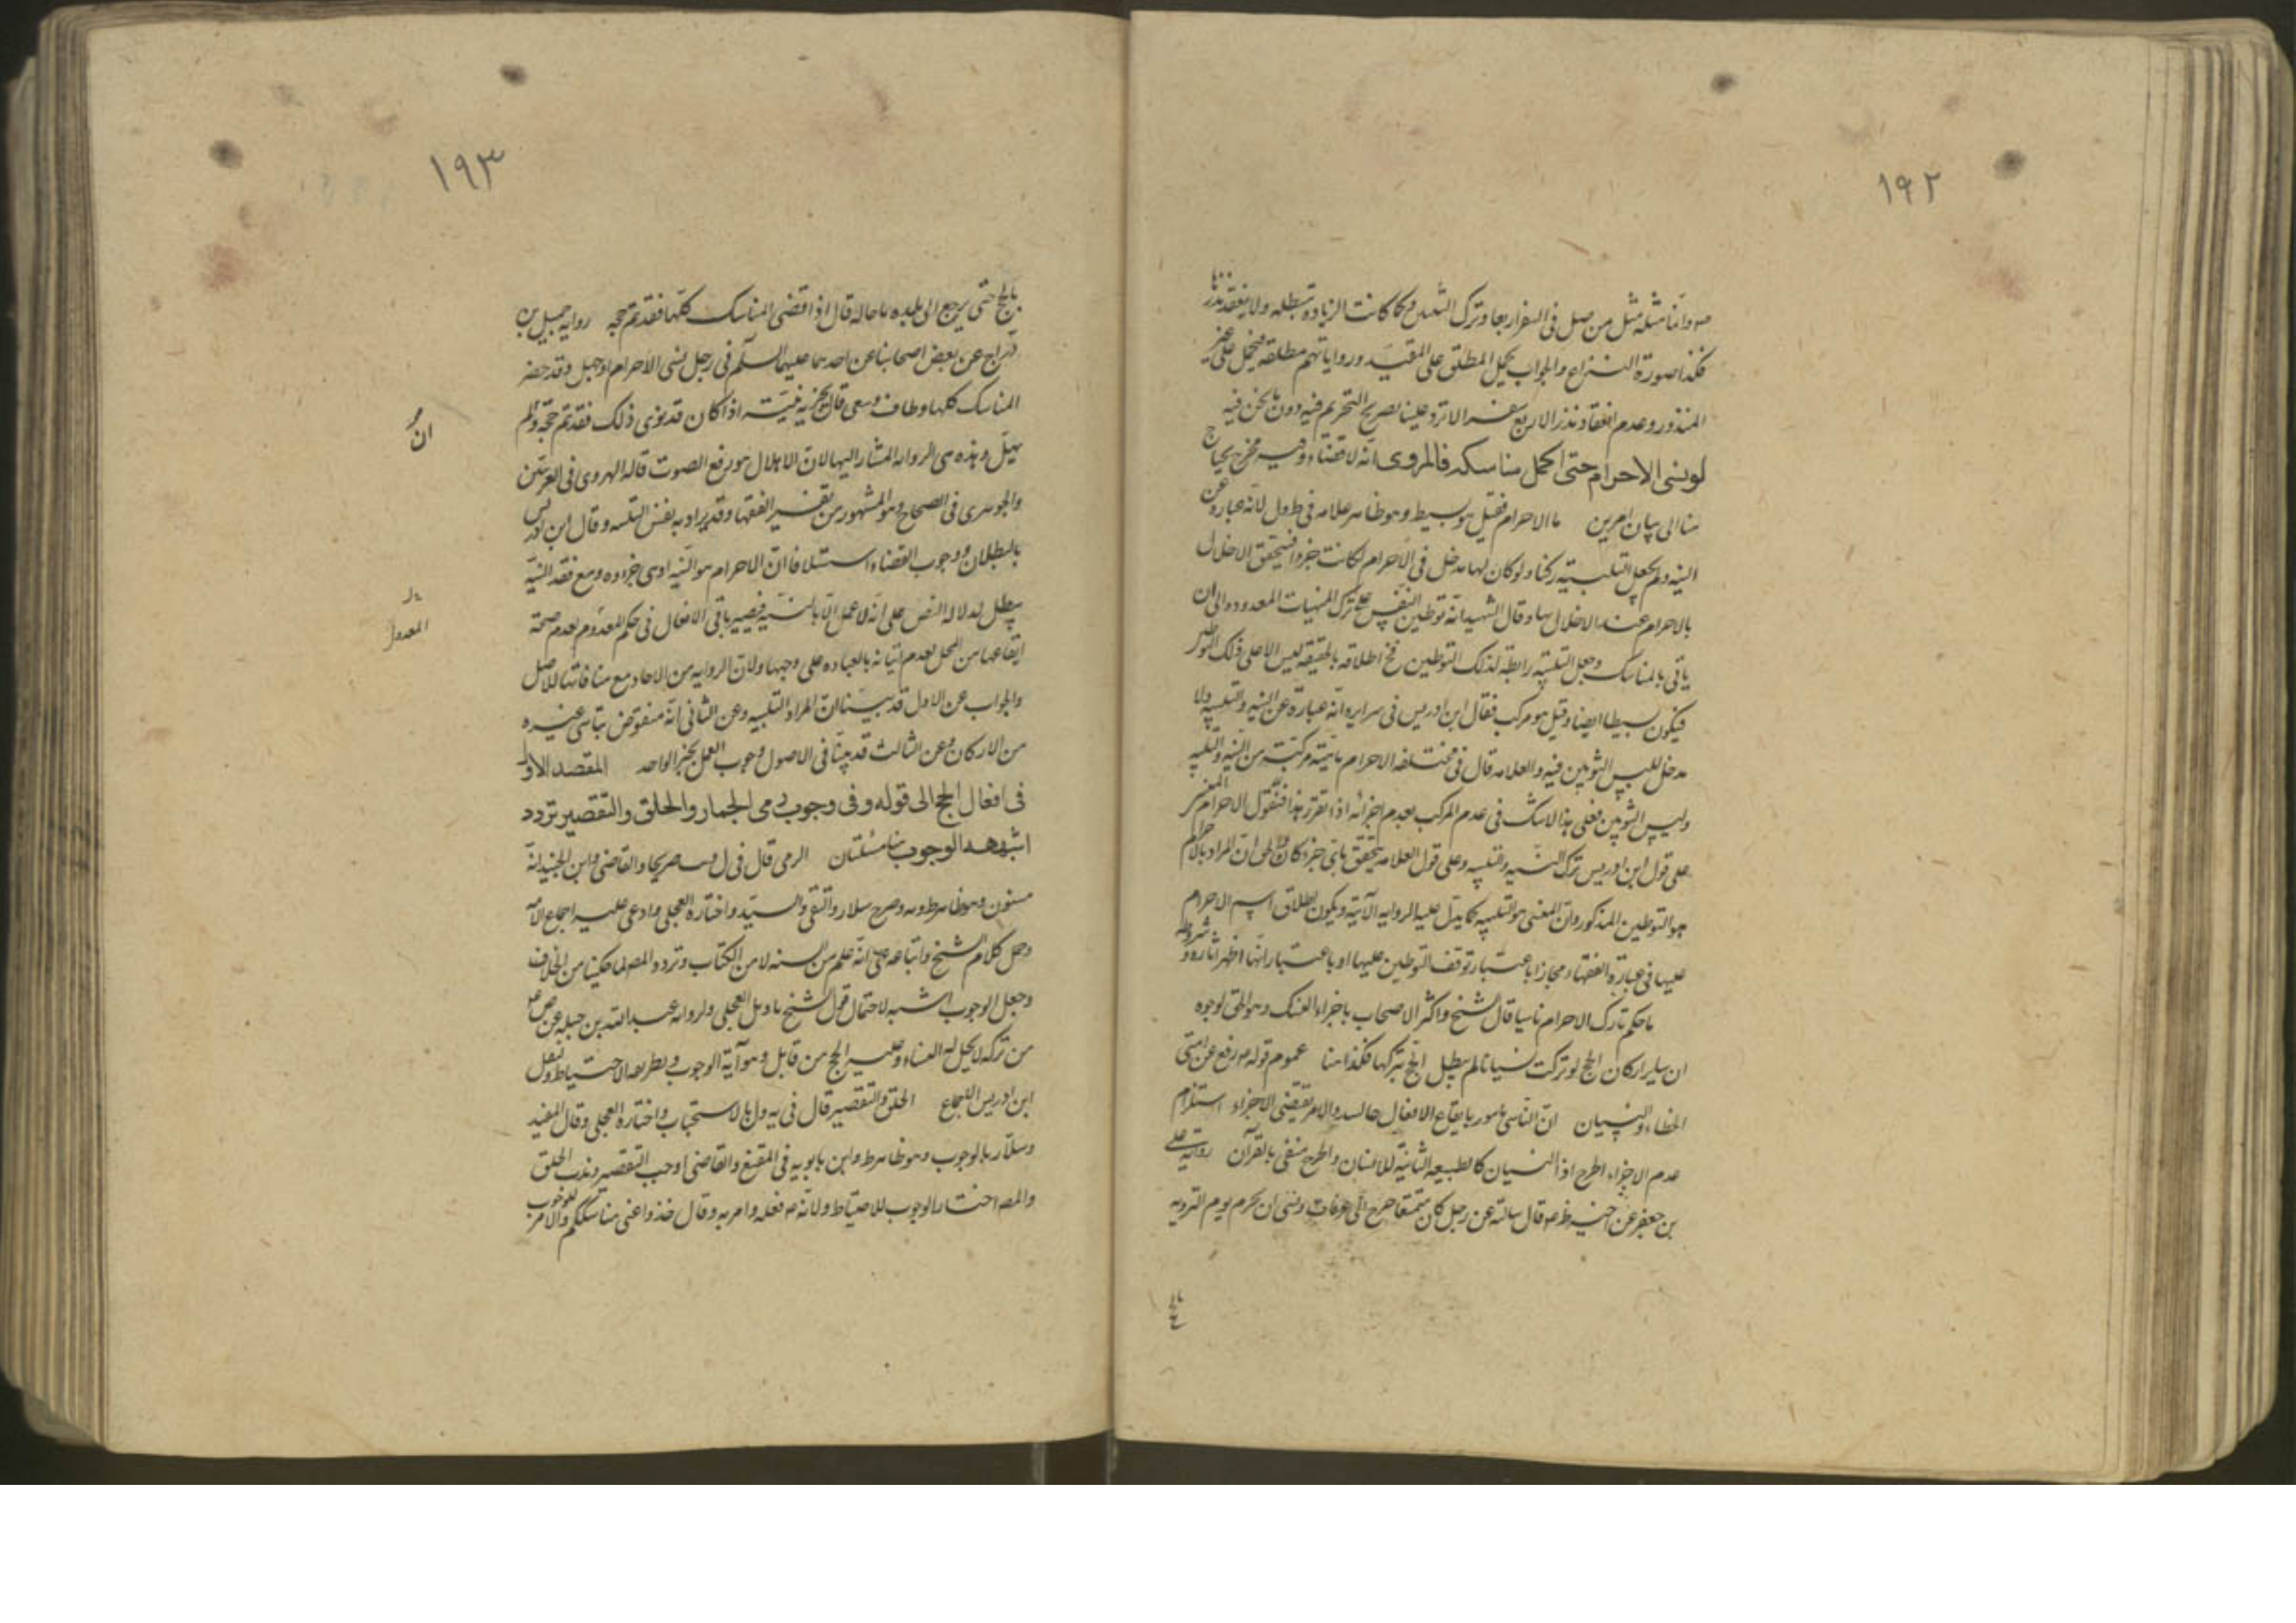 ١٩٢
وانما مثله مثل من صلى في السفر اربعا وترك التقصير كما كانت الزيادة مبطله ولا ينعقد نذرها
فكذا صورة النزاع والجواب يحمل المطلق على المقيد ورواياتهم مطلقة فيحمل على غير
المنذور وعدم انعقاد نذر الاربع سفرا لا ترد علينا لصريح التحريم فيه دون ما نحن فيه
لو نسى الاحرام حتى اكمل مناسكه فالمروى انه لا قضاء وفيه مخرج يحتاج
هنا الى بيان امرين ما الاحرام فقيل هو بسيط وهو ظاهر علامه في ط ول لانه عبارة عن
النيه ولم يجعل التلبية ركنا ولو كان لها مدخل في الاحرام لكانت جزوا فيتحقق الاخلال
بالاحرام عند الاخلال بها وقال الشهيد انه توطين النفس على ترك المنهيات المعدوده الى ان
ياتى بالمناسك وجعل التلبية رابطة لذلك التوطين فح اطلاقه بالحقيقه ليس الا على ذلك التوطين
فيكون بسيطا ايضا وقيل هو مركب فقال ابن ادريس في سرايره انه عبارة عن النيه والتلبيه ولا
مدخل للبس الثوبين فيه والعلامه قال في مختلفه الاحرام ماهيته مركبة من النيه والتلبيه
ولبس الثوبين فعلى هذا لا شك في عدم المركب بعدم اجزائه اذا تقرر هذا فنقول الاحرام المفسر
على قول ابن ادريس ترك النيه والتلبيه وعلى قول العلامه يتحقق باى جزء كان والحق ان المراد بالاحرام
هو التوطين المذكور وان المعنى هو التلبيه كما يدل عليه الروايه الآتية ويكون اطلاق اسم الاحرام
عليها في عبارة الفقهاء مجازا باعتبار توقف التوطين عليها او باعتبار انها اظهر آثاره وشروطه
ما حكم تارك الاحرام ناسيا قال الشيخ واكثر الاصحاب باجزاء النسك وهو الحق لوجوه
ان ساير اركان الحج لو تركت نسيانا لم يبطل الحج بتركها فكذا هنا عموم قوله رفع عن امتى
الخطاء والنسيان ان الناسى مامور بايقاع الافعال والامر يقتضى الاجزاء استلزام
عدم الاجزاء الحرج اذ النسيان كالطبيعه الثانية للانسان والحرج منفى بالقرآن رواية على
بن جعفر عن اخيه قال سالته عن رجل كان متمتعا خرج الى عرفات ونسى ان يحرم يوم الترويه
١٩٣
بالحج حتى يرجع الى بلده ما حاله قال اذا قضى المناسك كلها فقد تم حجه روايه جميل بن
دراج عن بعض اصحابنا عن احدهما عليهما السلم في رجل نسى الاحرام او جهل وقد حضر
المناسك كلها وطاف وسعى قال يجزيه نيته اذا كان قد نوى ذلك فقد تم حجه وان لم
يهل وهذه هى الروايه المشار اليها لان الاهلال هو رفع الصوت قاله الهروى في الغريبين
والجوهرى في الصحاح وهو المشهور من تفسير الفقها وقد يراد به نفس التلبيه وقال ابن ادريس
بالبطلان ووجوب القضاء استسلافا ان الاحرام هو النيه او هى جزءه ومع فقد النية
يبطل لدلاله النص على انه لا عمل الا بالنية فيصير باقى الافعال في حكم المعدوم لعدم صحة
ايقاعها من المحل لعدم اتيانه بالعباده على وجهها ولان الروايه من الاحاد مع منافاتها للاصل
والجواب عن الاول قد بينا ان المراد التلبيه وعن الثانى انه منقوض بناسى غيره
من الاركان وعن الثالث قد بينا في الاصول وجوب العمل بخبر الواحد المقصد الاول
في افعال الحج الى قوله وفى وجوب رمى الجمار والحلق والتقصير تردد
اشبهه الوجوب هنا مسئلتان الرمى قال في ل صريحا والقاضى وابن الجنيد انه
مسنون وهو ظاهر وصرح سلار والتقى والسيد واختاره العجلى وادعى عليه اجماع الامه
وحمل كلام الشيخ واتباعه على انه علم من السنه لا من الكتاب وتردد المص لما حكينا من الخلاف
وجعل الوجوب اشبه لاحتمال قول الشيخ تاويل العجلى ولروايه عبدالله بن جبله عن ص
من تركه لا يحل له النساء وعليه الحج من قابل وهو آية الوجوب ولطريقه الاحتياط ونقل
ابن ادريس الاجماع الحلق والتقصير قال في يه ول بالاستحباب واختاره العجلى وقال المفيد
وسلار بالوجوب وهو ظاهر ط وابن بابويه في المقنع والقاضى اوجب التقصير وندب الحلق
والمص اختار الوجوب للاحتياط ولانه فعله وامر به وقال خذوا عنى مناسككم والامر للوجوب
ان
المعدول